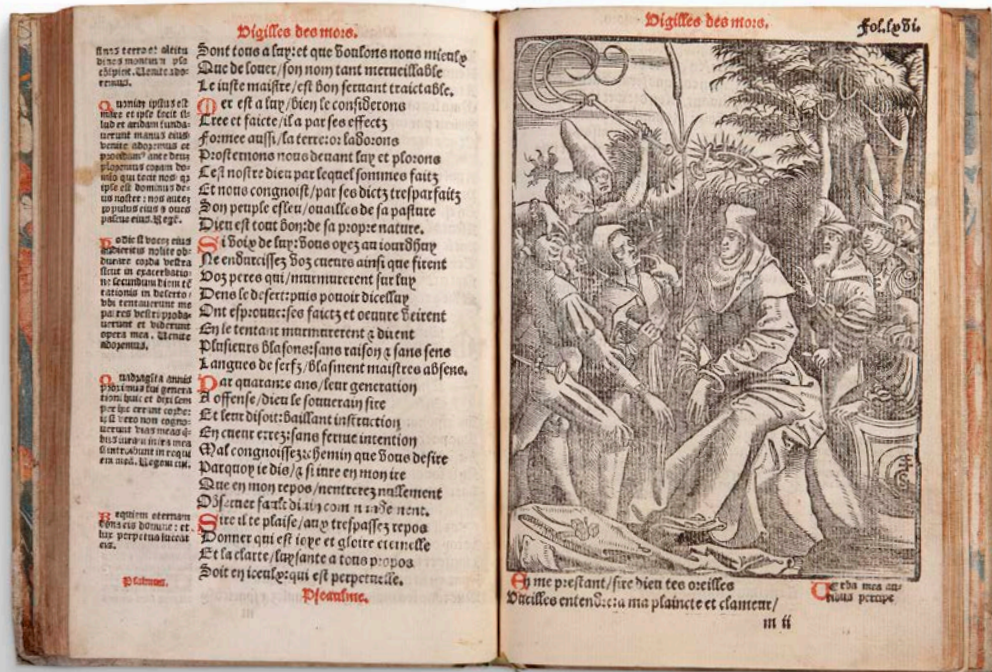 Vigilles des mors.
fines terre et altitu
dines montium ipse
conspicit. Venite ado-
remus.
Quoniam ipsius est
mare et ipse fecit il-
lud et aridam funda-
uerunt manus eius
venite adoremus et
procidamus ante deum
ploremus coram do-
mino qui fecit nos qz
ipse est dominus de-
us noster: nos autez
populus eius & oues
pascue eius. Rege.
Hodie si vocez eius
audieritis nolite ob-
durare corda vestra
sicut in exacerbatio-
ne secundum diem te
tationis in deserto/
vbi tentauerunt me
patres vestri proba-
uerunt et viderunt
opera mea. Uenite
adoremus.
Quadragita annis
proximus fui genera
tioni huic et dixi sem
per hi errant corde:
ipsi vero non cogno-
uerunt vias meas q-
bus iuraui in ira mea
si introibunt in requi
em meā.
Requiem eternam
dona eis domine: et
lux perpetua luceat
eis.
Psalmus.
Sont tous a luy: et que voulons nous mieulx
Que de louer/son nom tant merueillable
Le iuste maistre/est bon seruant traictable.
Mer est a luy/bien le considerons
Cree et faicte/il a par ses effectz
Formee aussi/la terre: or labourons
Prosternons nous deuant luy et plorons
Cest nostre dieu par lequel sommes faitz
Et nous congnoist/par ses dictz tresparfaitz
Son peuple esleu/ouailles de sa pasture
Dieu est tout bon: de sa propre nature.
Si voix de luy: vous oyez au iourdhuy
Ne endurcissez voz cueurs ainsi que firent
Voz peres qui/murmurerent sur luy
Dens le desert: puis pouoir dicelluy
Ont esprouue: ses faictz et oeuure veirent
En le tentant murmurerent & dirent
Plusieurs blasons: sans raison & sans sens
Langues de serfz/blasment maistres absens.
Par quarante ans/leur generation
A offense/dieu le souuerain sire
Et leur disoit: baillant instruction
En cueur errez: sans ferme intention
Mal congnoissez: chemin que vous desire
Parquoy ie dis/& si iure en mon ire
Que en mon repos/nentrerez nullement
Sire il te plaise/aux trespassez repos
Donner qui est ioye et gloire eternelle
Et la clarte/luysante a tous propos
Soit en iceulx: qui est perpetuelle.
Pseaulme.
Vigilles des mors.
Fol. lxvi.
En me prestant/sire dieu tes oreilles
Vueilles entendre: a ma plaincte et clameur/
Verba mea au-
ribus percipe
m ii